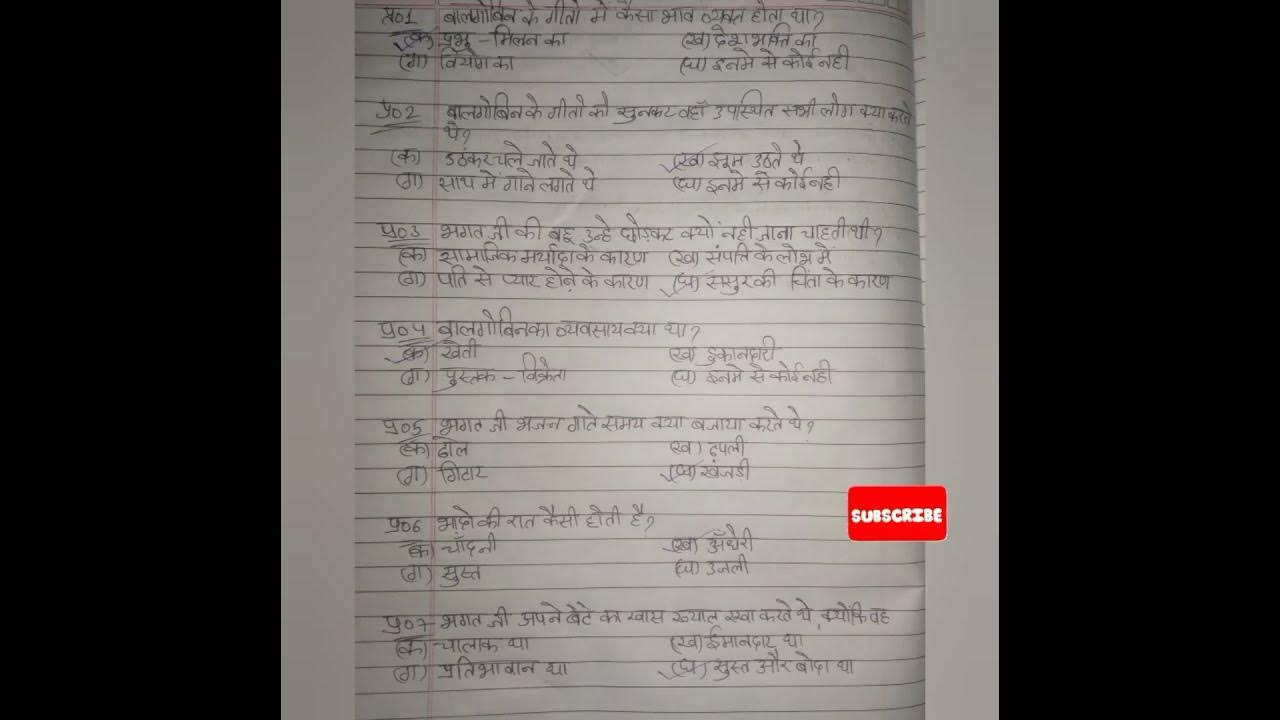 प्र01 बालगोबिन के गीतो में कैसा भाव व्यक्त होता था?
(क) प्रभु - मिलन का (ख) देश भक्ति का
(ग) वियोग का (घ) इनमे से कोई नही
प्र02 बालगोबिन के गीतो को सुनकर वहाँ उपस्थित सभी लोग क्या करते
थे?
(क) उठकर चले जाते थे (ख) झूम उठते थे
(ग) साथ में गाने लगते थे (घ) इनमे से कोई नही
प्र03 भगत जी की बहू उन्हे छोड़कर क्यों नही जाना चाहती थी?
(क) सामाजिक मर्यादा के कारण (ख) संपत्ति के लोभ में
(ग) पति से प्यार होने के कारण (घ) ससुर की चिंता के कारण
प्र04 बालगोबिन का व्यवसाय क्या था?
(क) खेती (ख) दुकानदारी
(ग) पुस्तक - विक्रेता (घ) इनमे से कोई नही
प्र05 भगत जी भजन गाते समय क्या बजाया करते थे?
(क) ढोल (ख) ढपली
(ग) गिटार (घ) खंजडी
प्र06 भादो की रात कैसी होती है?
(क) चाँदनी (ख) अँधेरी
(ग) सुस्त (घ) उजली
प्र07 भगत जी अपने बेटे का खास ख्याल रखा करते थे, क्योंकि वह
(क) चालाक था (ख) ईमानदार था
(ग) प्रतिभावान था (घ) सुस्त और बोदा था
SUBSCRIBE